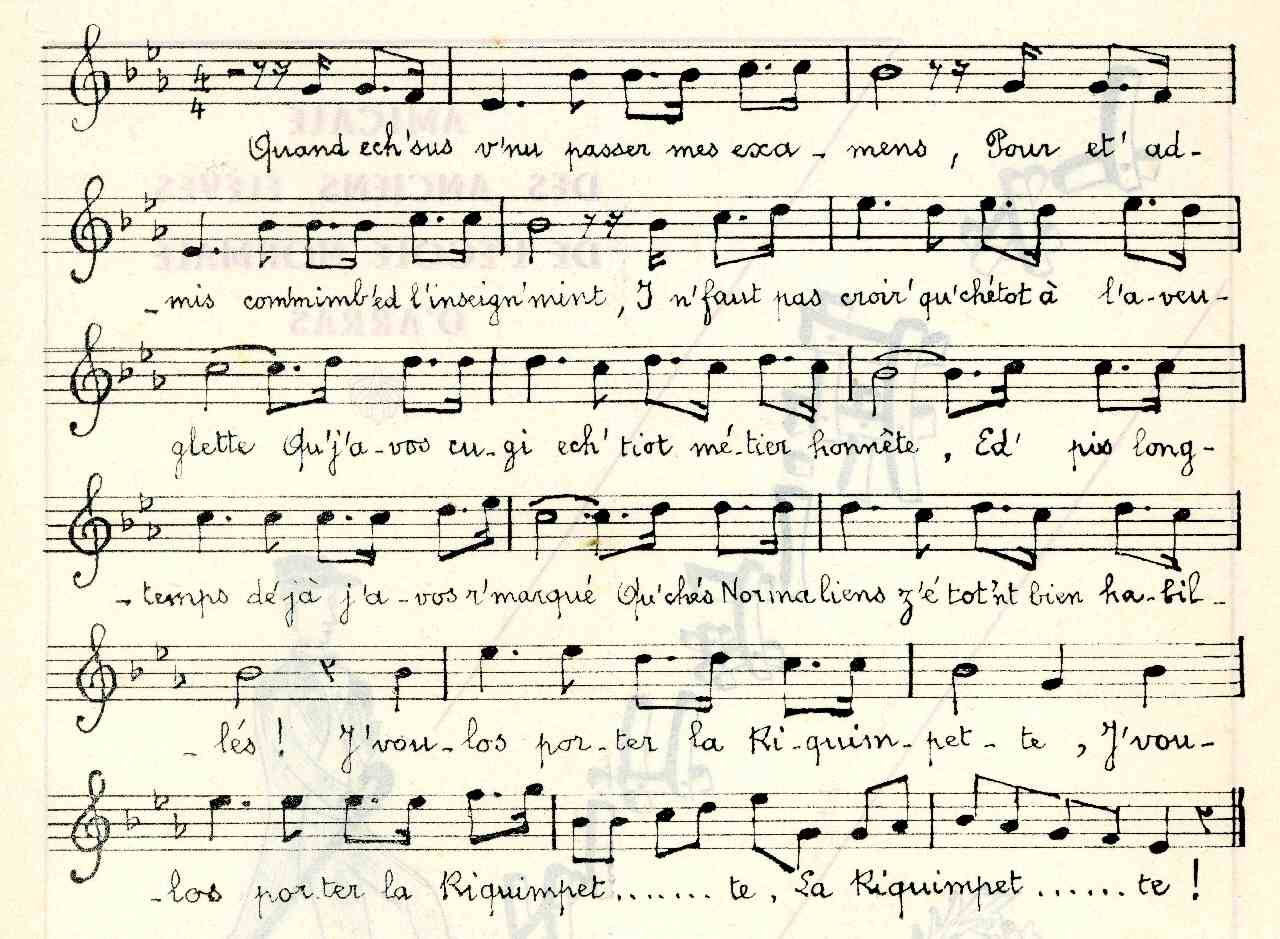 4
4
Quand ech'sus v'nu passer mes exa - mens, Pour et' ad-
- mis comm'imb'ed l'inseign'mint, I n'faut pas croir' qu'chétot à l'a-veu-
glette Qu'j'a-vos cu-gi ech' tiot mé-tier honnête, Ed' pis long-
- temps déjà j'a-vos r'marqué Qu'chés Normaliens z'é tot'nt bien ha-bil-
- lés ! J'vou-los por-ter la Ri-quim-pet-te, J'vou-
- los por.ter la Riquimpet.......te. La Riquimpet......te !
AMICALE
DES ANCIENS ELEVES
DE L'ECOLE NORMALE
D'ARRAS